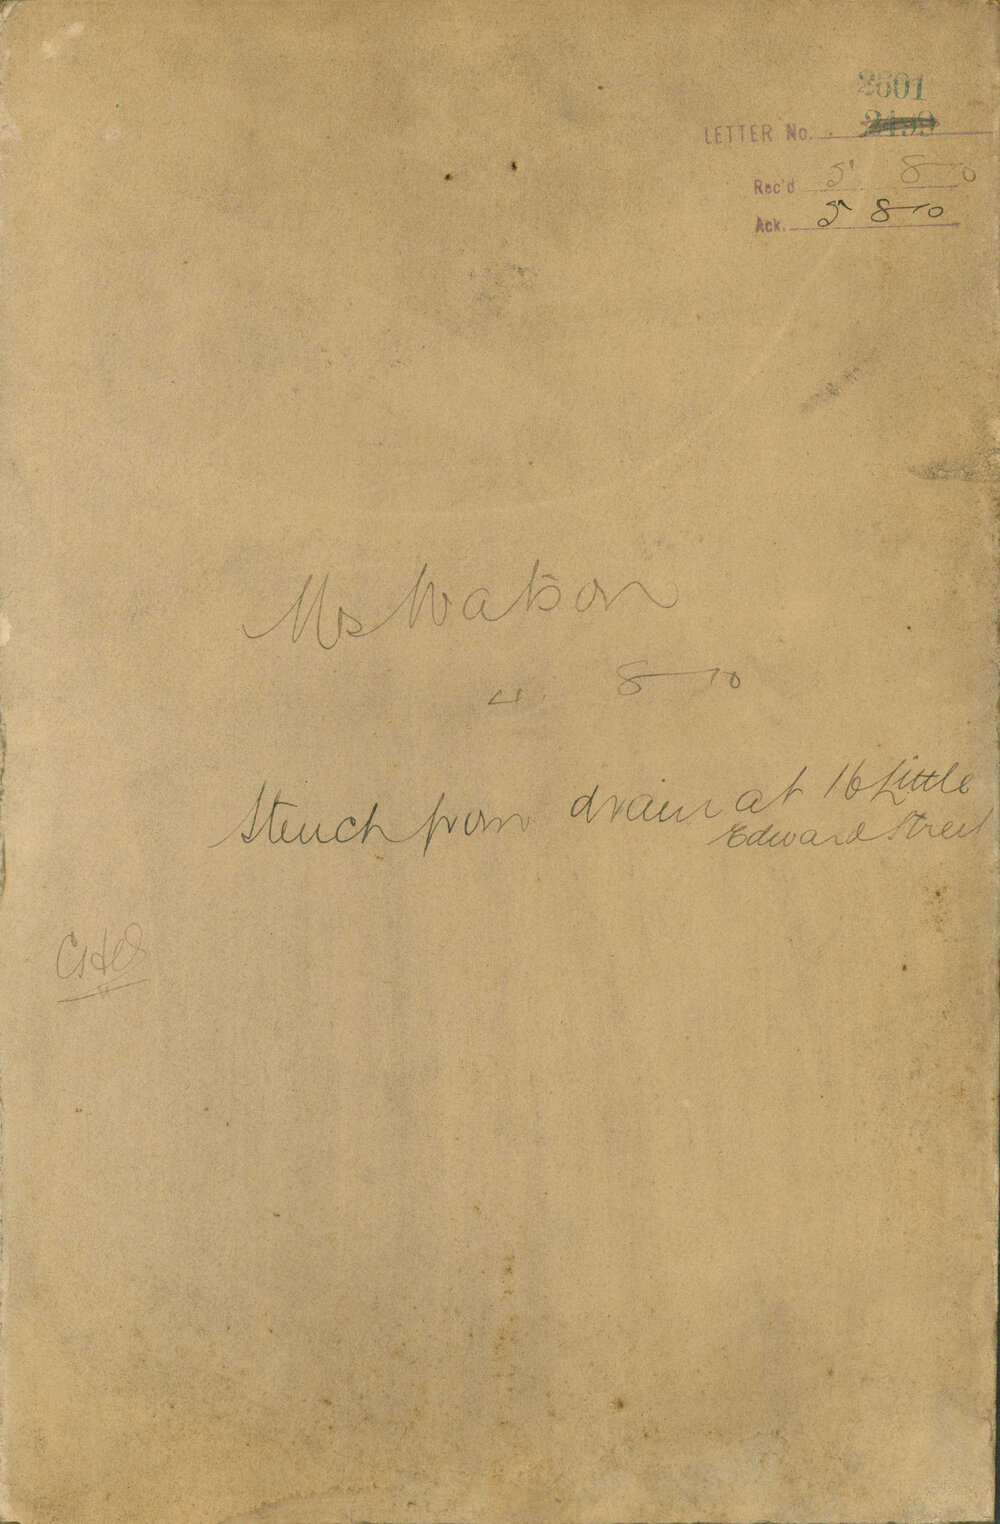 2501
LETTER No. 2499
Rec'd 5 8 10
Ack. 5 8 10
Mrs Watson
4 8 10
Stench from drain at 16 Little
Edward Street